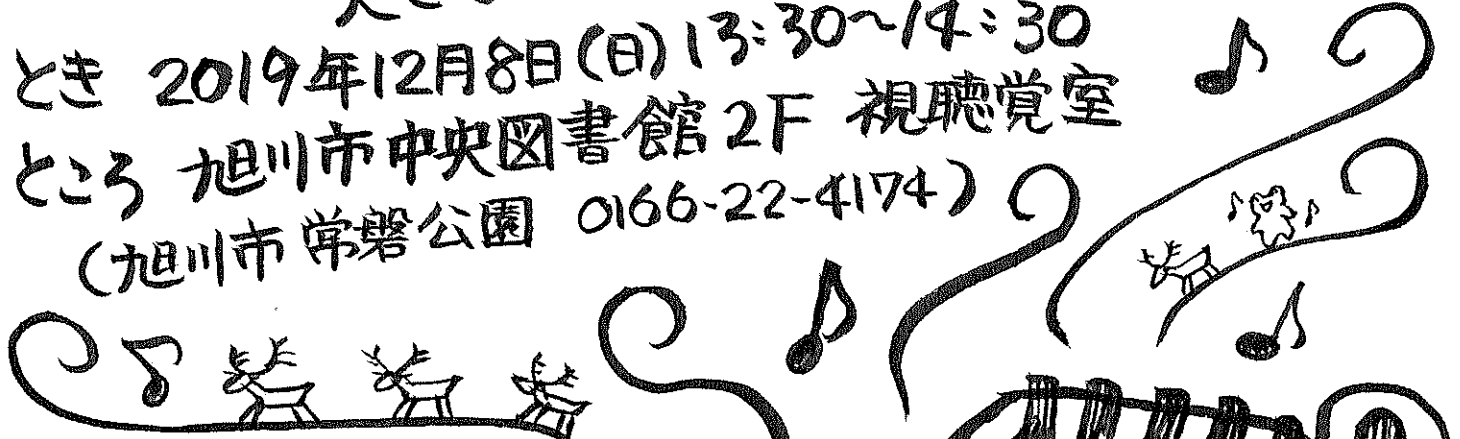 とき 2019年12月8日(日)13:30~14:30
ところ 旭川市中央図書館2F 視聴覚室
(旭川市常磐公園 0166-22-4174)